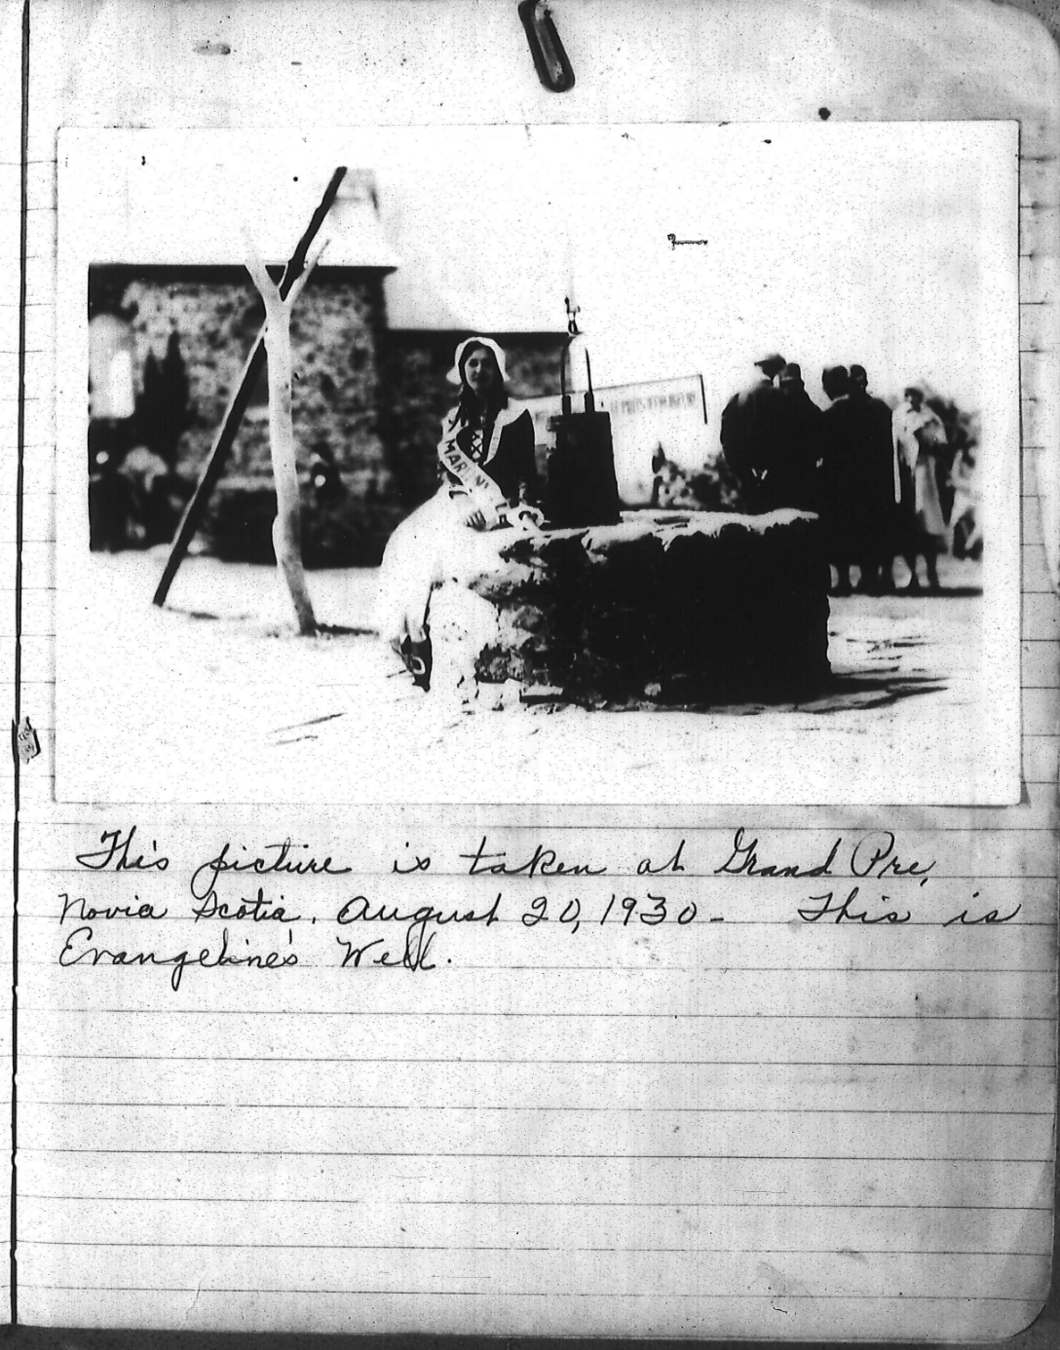 MARTINVILLE
This picture is taken at Grand Pre,
Novia Scotia, August 20, 1930- This is
Evangeline's Well.